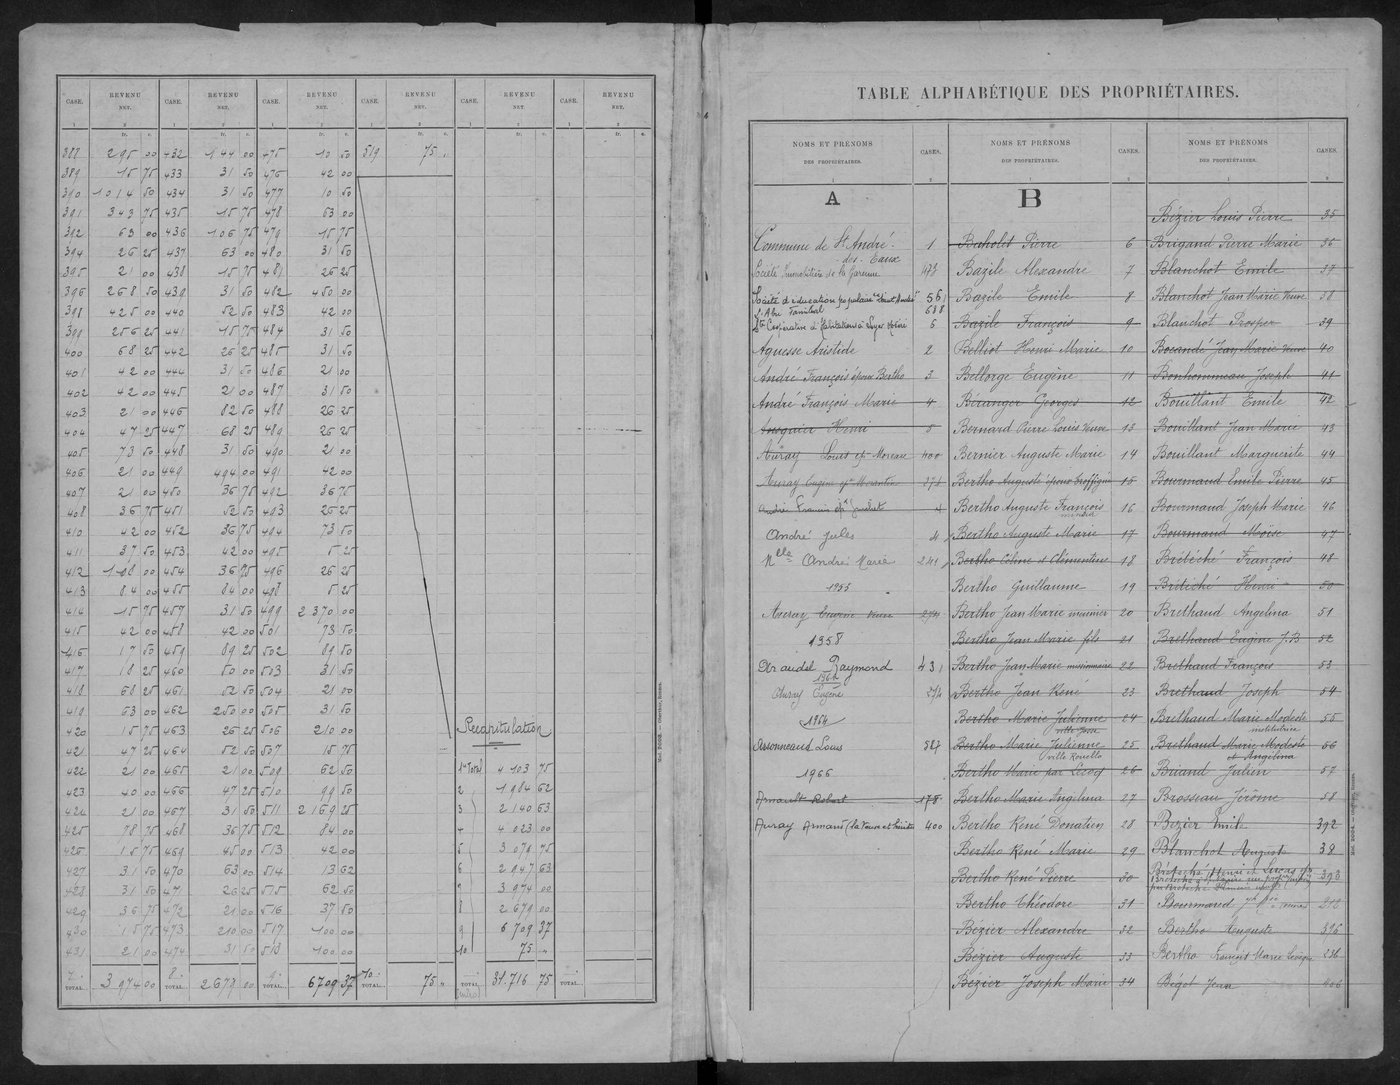 CASE. REVENU NET. CASE. REVENU NET. CASE. REVENU NET. CASE. REVENU NET. CASE. REVENU NET. CASE. REVENU NET.
1 2 1 2 1 2 1 2 1 2 1 2
fr. c. fr. c. fr. c. fr. c. fr. c. fr. c.
388 295 00 432 144 00 475 10 50 519 75 "
389 15 75 433 31 50 476 42 00
390 1014 50 434 31 50 477 10 50
391 343 75 435 15 75 478 63 00
392 63 00 436 106 75 479 15 75
394 26 25 437 63 00 480 31 50
395 21 00 438 15 75 481 26 25
396 268 50 439 31 50 482 450 00
398 425 00 440 52 50 483 42 00
399 256 25 441 15 75 484 31 50
400 68 25 442 26 25 485 31 50
401 42 00 444 31 50 486 21 00
402 42 00 445 21 00 487 31 50
403 21 00 446 82 50 488 26 25
404 47 25 447 68 25 489 26 25
405 73 50 448 31 50 490 21 00
406 21 00 449 494 00 491 42 00
407 21 00 450 36 75 492 36 75
408 36 75 451 52 50 493 26 25
410 42 00 452 36 75 494 73 50
411 37 50 453 42 00 495 5 25
412 108 00 454 36 75 496 26 25
413 84 00 455 84 00 498 5 25
414 15 75 457 31 50 499 2 370 00
415 42 00 458 42 00 501 73 50
416 17 50 459 89 25 502 89 50
417 18 25 460 50 00 503 31 50
418 68 25 461 52 50 504 21 00
419 63 00 462 250 00 505 31 50
420 15 75 463 26 25 506 210 00
Récapitulation
421 47 25 464 52 50 507 15 75
422 21 00 465 21 00 509 62 50 1er Total 4 103 75
423 40 00 466 47 25 510 99 50 2 1 984 62
424 21 00 467 31 50 511 2 169 25 3 2 140 63
425 78 75 468 36 75 512 84 00 4 4 023 00
426 15 75 469 45 00 513 42 00 5 3 079 75
427 31 50 470 63 00 514 13 62 6 2 947 63
428 31 50 471 26 25 515 62 50 7 3 974 00
429 36 75 472 21 00 516 37 50 8 2 679 00
430 15 75 473 210 00 517 100 00 9 6 709 37
431 21 00 474 31 50 518 100 00 10 75 "
7e TOTAL. 3 974 00 8e TOTAL. 2 679 00 9e TOTAL. 6709 37 10e TOTAL. 75 " TOTAL 31.716 75 TOTAL.
Mod. — Oberthur, Rennes.
TABLE ALPHABÉTIQUE DES PROPRIÉTAIRES.
NOMS ET PRÉNOMS DES PROPRIÉTAIRES. CASES. NOMS ET PRÉNOMS DES PROPRIÉTAIRES. CASES. NOMS ET PRÉNOMS DES PROPRIÉTAIRES. CASES.
1 2 1 2 1 2
A
Commune de St André- 1
des-Eaux
Société Immobilière de la Garenne 473
Société d'éducation populaire "Saint André" 561
L'Abri Familial 688
Sté Coopérative d'Habitations à Loyer Modéré 5
Aguesse Aristide 2
André François époux Bertho 3
André François Marie 4
Henri 5
Auray Louis ép. Moreau 400
Auray Eugène 274
4
André Jules 4
Mlle André Marie 241
1955
Auray Eugène Veuve 274
1958
Araudel Raymond 431
1962
Auray Eugène 274
1964
Assonneaud Louis 527
1966
Arnault Robert 178
Auray Armand (la Veuve et héritiers) 400
B
Baholet Pierre 6
Bazile Alexandre 7
Bazile Emile 8
Bazile François 9
Belliot Henri Marie 10
Bellorge Eugène 11
Béranger Georges 12
Bernard Pierre Louis Veuve 13
Bernier Auguste Marie 14
Bertho Auguste époux 15
Bertho Auguste François 16
mineur
Bertho Auguste Marie 17
Bertho Céline et Clémentine 18
Bertho Guillaume 19
Bertho Jean Marie meunier 20
Bertho Jean Marie fils 21
Bertho Jean Marie missionnaire 22
Bertho Jean René 23
Bertho Marie Julienne 24
ville Josse
Bertho Marie Julienne 25
ville Rouello
Bertho Marie par Lecoq 26
Bertho Marie Angelina 27
Bertho René Donatien 28
Bertho René Marie 29
Bertho René Pierre 30
Bertho Théodore 31
Bézier Alexandre 32
Bézier Auguste 33
Bézier Joseph Marie 34
Bézier Louis Pierre 35
Brigand Pierre Marie 36
Blanchot Emile 37
Blanchot Jean Marie Veuve 38
Blanchot Prosper 39
Bocandé Jean Marie Veuve 40
Bonhommeau Joseph 41
Bouillant Emile 42
Bouillant Jean Marie 43
Bouillant Marguerite 44
Bourmaud Emile Pierre 45
Bourmaud Joseph Marie 46
Bourmaud Moïse 47
Brétéché François 48
Brétéché Henri 50
Brethaud Angelina 51
Brethaud Eugène J.B 52
Brethaud François 53
Brethaud Joseph 54
Brethaud Marie Modeste 55
institutrice
Brethaud Marie Modeste 56
et Angelina
Briand Julien 57
Brosseau Jérôme 58
Bézier Emile 392
Blanchot Auguste 38
393
Bourmaud
Bertho Auguste 396
Bertho François Marie Lévêque 236
Bégot Jean 406
Mod. — Oberthur, Rennes.